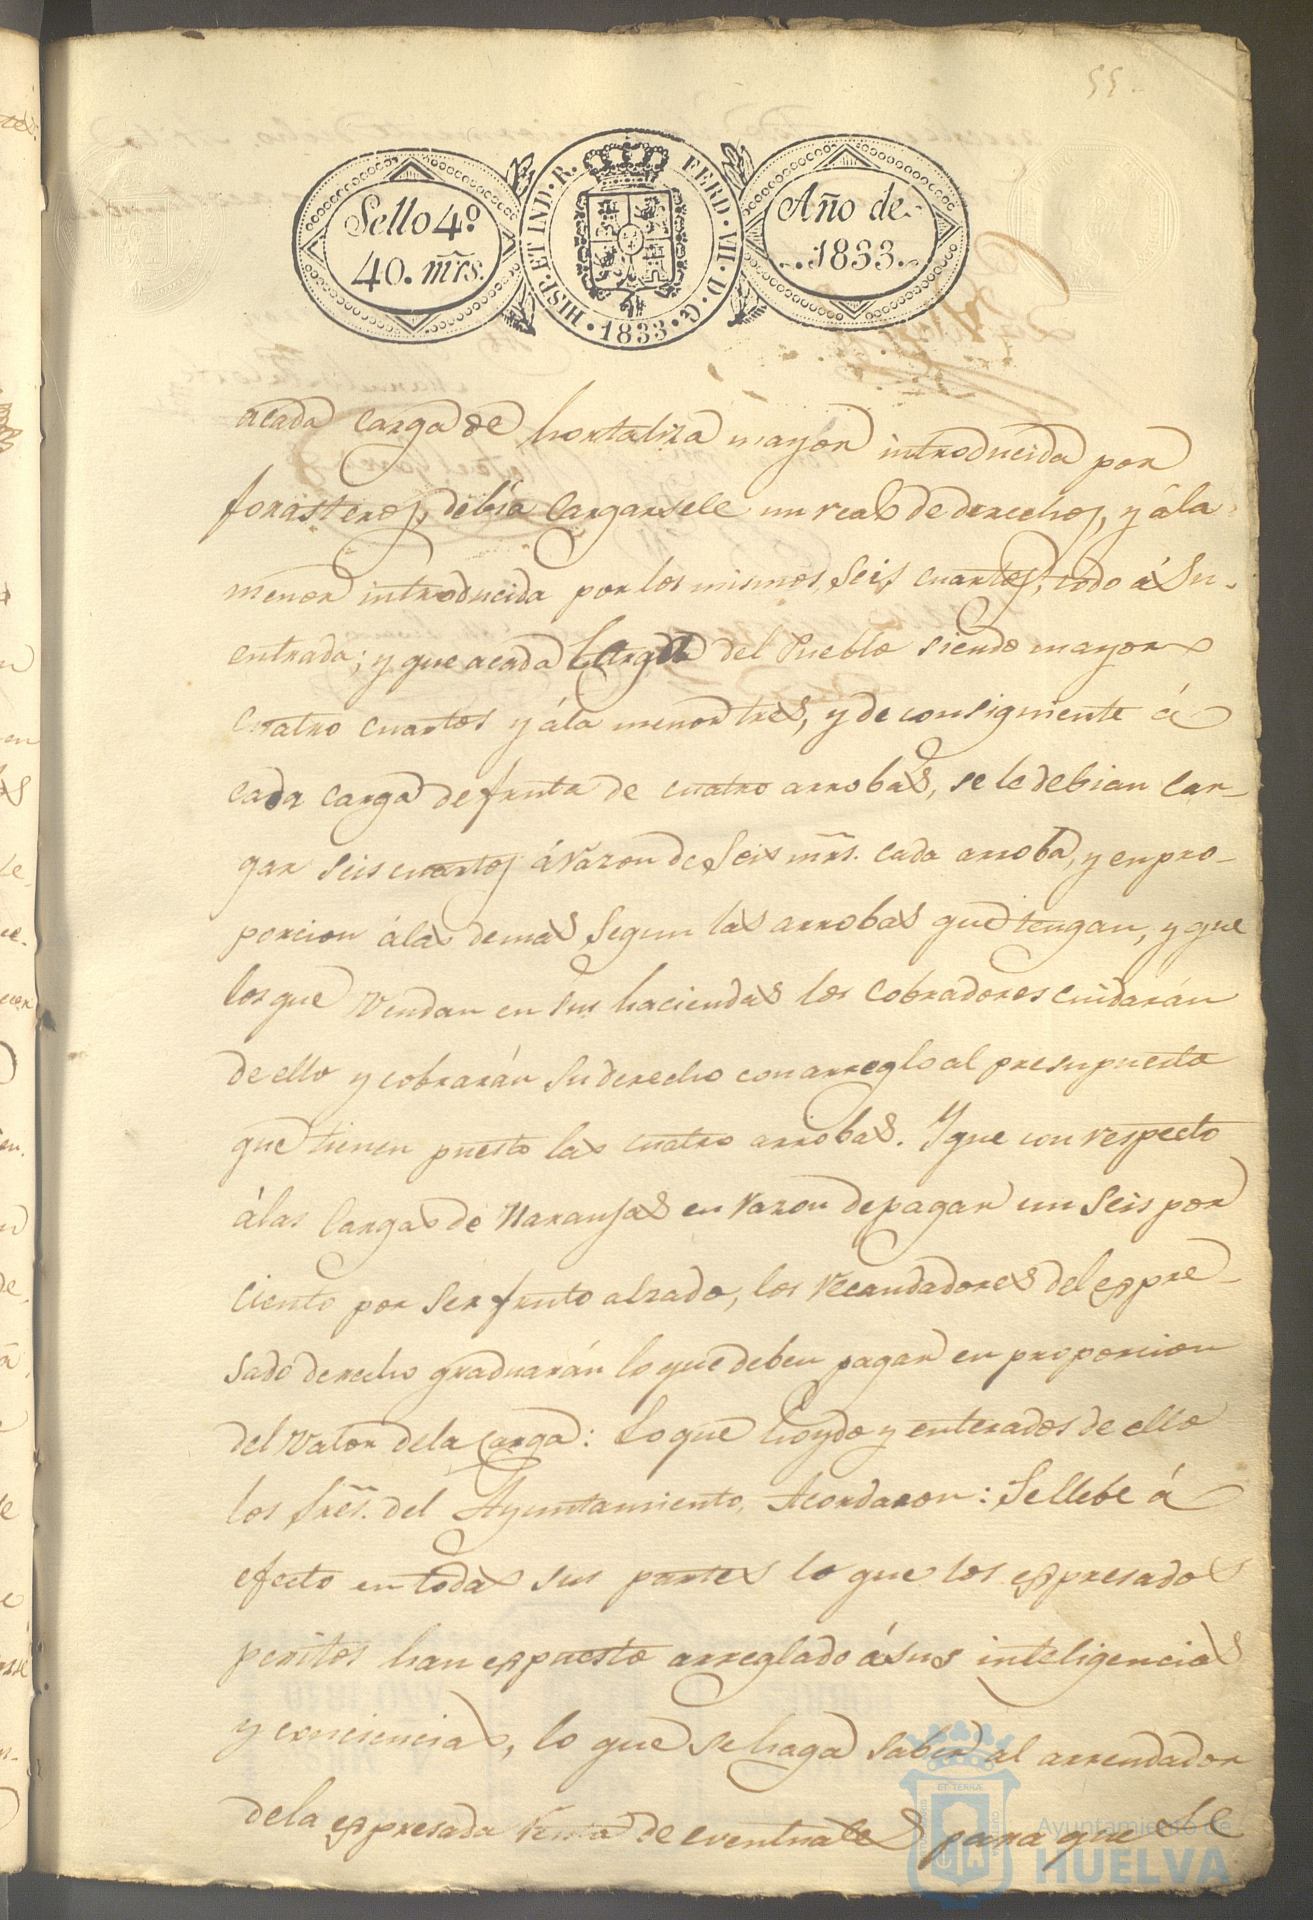 55
Sello 4º
40. mrs.
HISP. ET IND. R. FERD. VII. D. G. 1833
Año de
1833.
acada carga de hortaliza mayor introducida por
forasteros, debía cargarsele un real de derechos, y á la
menor introducida por los mismos, seis cuartos, todo á su
entrada; y que acada carga del Pueblo siendo mayor
cuatro cuartos y ála menor tres, y de consiguiente á
cada carga defruta de cuatro arrobas, se le debian car-
gar seis cuartos á razon de seis mrs. cada arroba, y en pro-
porcion álas demas segun las arrobas que tengan, y que
los que vendan en sus haciendas los cobradores cuidarán
de ello y cobrarán su derecho con arreglo al presupuesto
que tienen puesto las cuatro arrobas. Y que con respecto
álas cargas de Naranjas en razon de pagar un seis por
ciento por ser fruto alzado, los recaudadores del espre-
sado derecho graduarán lo que deben pagar en proporcion
del valor dela carga: Lo que hoydo y enterados de ello
los Sres. del Ayuntamiento, Acordaron: Se llebe á
efecto en todas sus partes lo que los espresados
peritos han espuesto arreglado á sus inteligencias
y conciencias, lo que se haga saber al arrendador
dela espresada renta de eventuales para que se
Ayuntamiento de
HUELVA